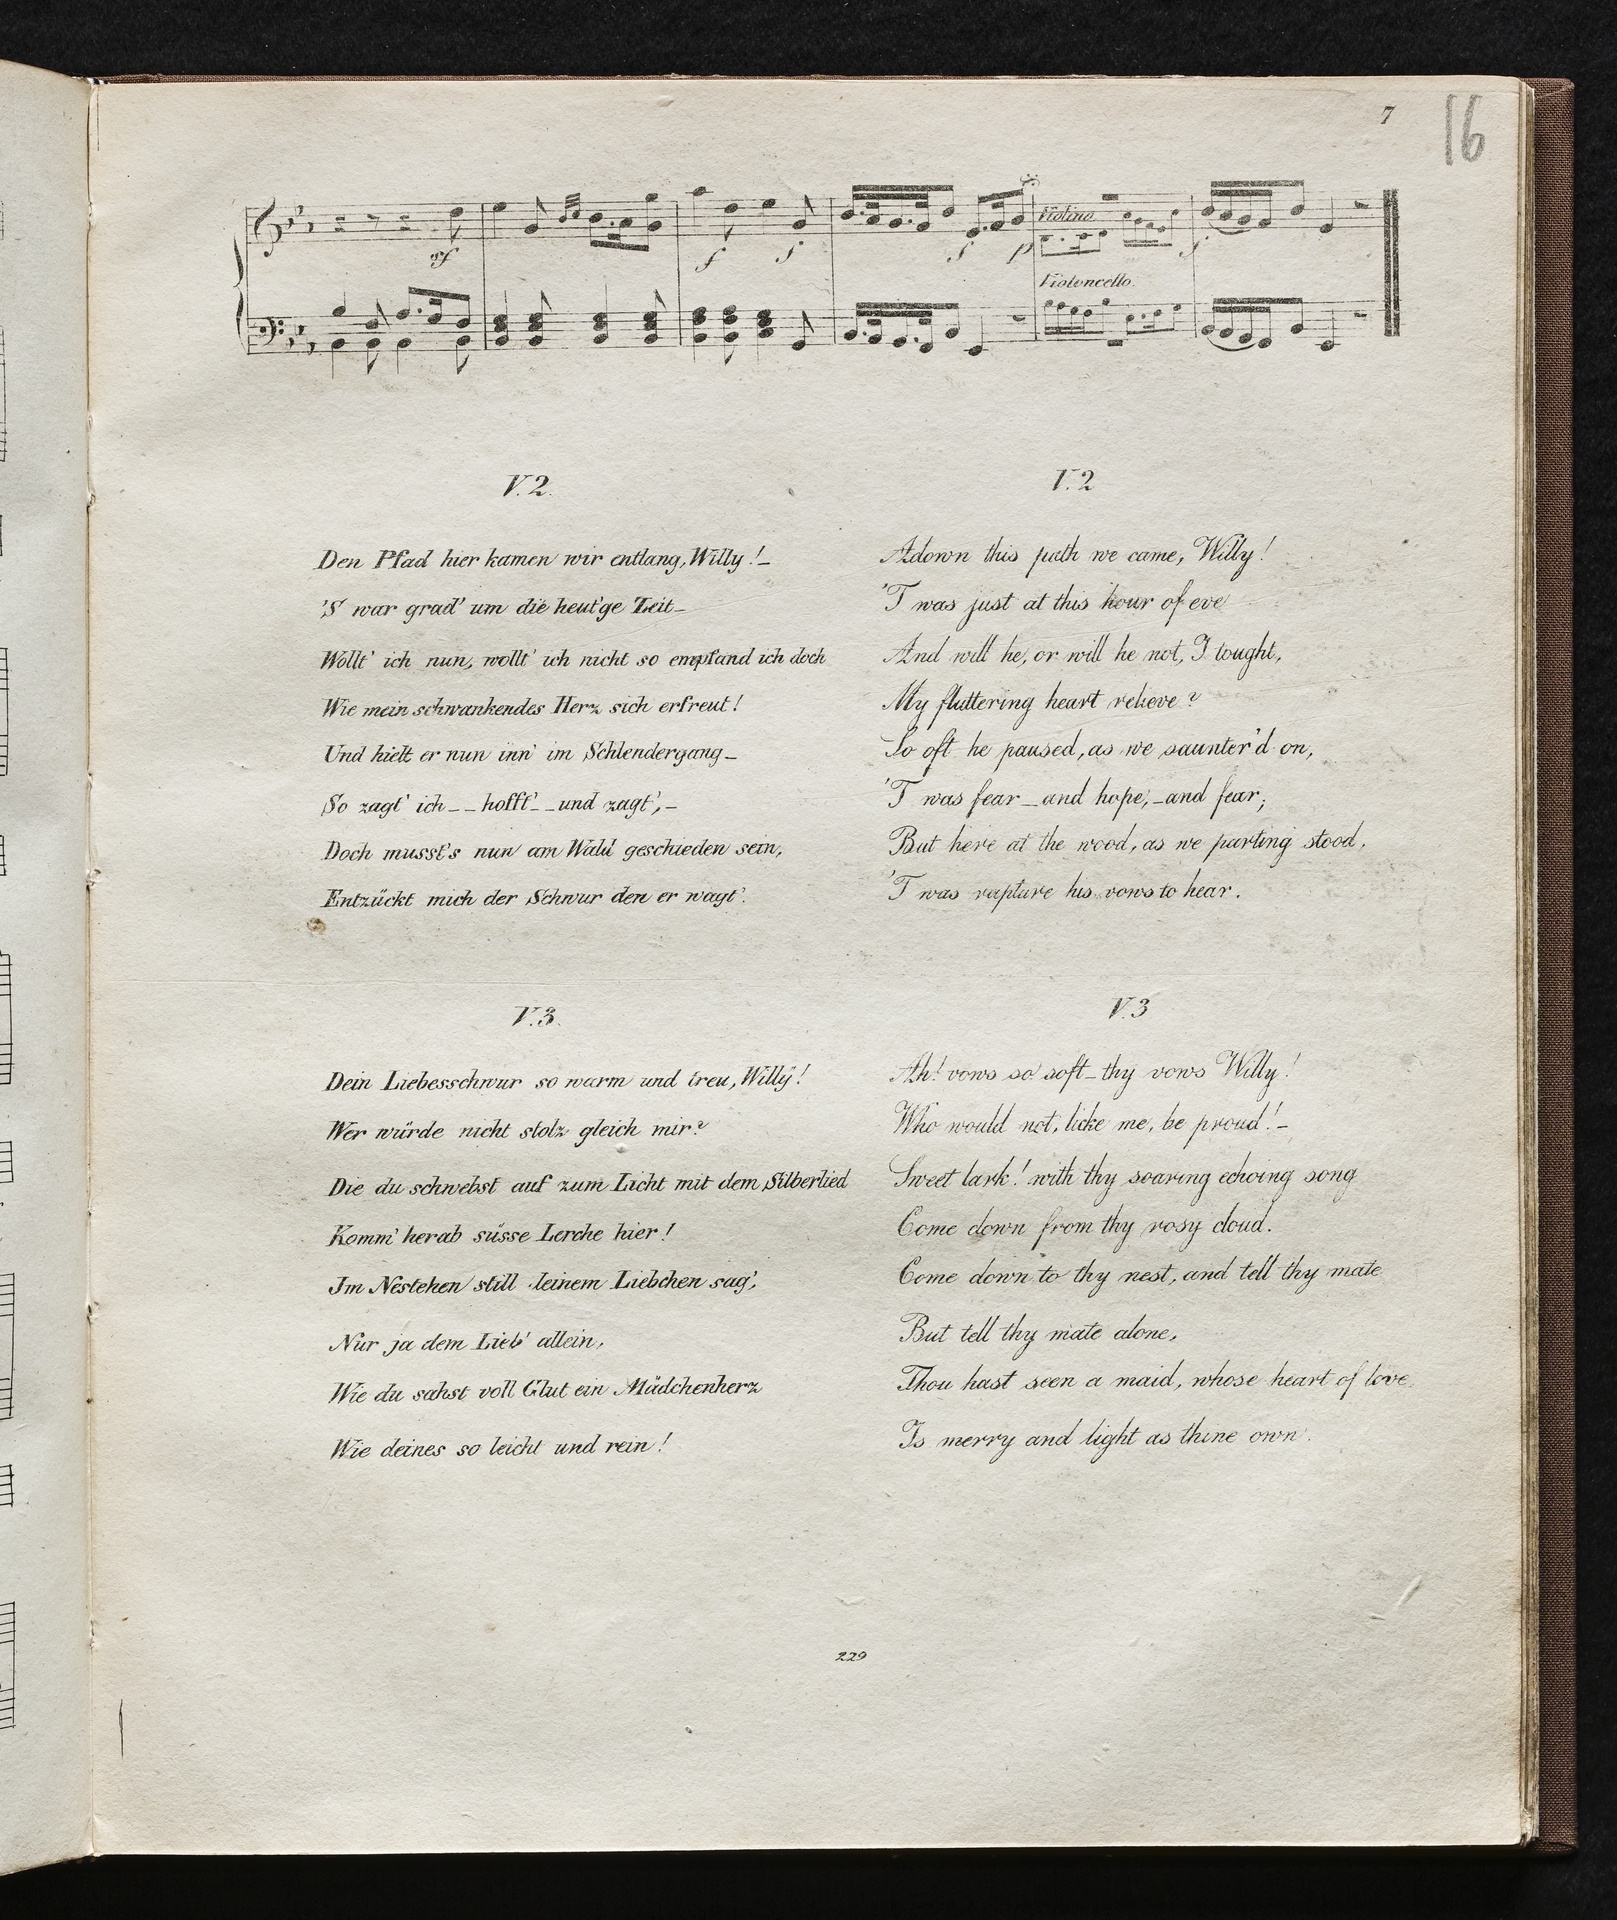 7
16
sf
f
f
f
p
Violino
f
Violoncello.
V. 2.
Den Pfad hier kamen wir entlang, Willy! –
'S war grad' um die heut'ge Zeit –
Wollt' ich nun, wollt' ich nicht so empfand ich doch
Wie mein schwankendes Herz sich erfreut!
Und hielt er nun inn' im Schlendergang –
So zagt' ich – – hofft' – – und zagt', –
Doch musst's nun am Wald geschieden sein,
Entzückt mich der Schwur den er wagt'.
V. 3.
Dein Liebesschwur so warm und treu, Willÿ!
Wer würde nicht stolz gleich mir?
Die du schwebst auf zum Licht mit dem Silberlied
Komm' herab süsse Lerche hier!
Im Nestchen still deinem Liebchen sag',
Nur ja dem Lieb' allein,
Wie du sahst voll Glut ein Mädchenherz
Wie deines so leicht und rein!
V. 2
Adown this path we came, Willy!
'T was just at this hour of eve
And will he, or will he not, I tought,
My fluttering heart relieve?
So oft he paused, as we saunter'd on,
'T was fear – and hope, – and fear;
But here at the wood, as we parting stood,
'T was rapture his vows to hear.
V. 3
Ah! vows so soft – thy vows Willy!
Who would not, licke me, be proud! –
Sweet lark! with thy soaring echoing song
Come down from thy rosy cloud.
Come down to thy nest, and tell thy mate
But tell thy mate alone,
Thou hast seen a maid, whose heart of love
Is merry and light as thine own.
229